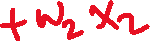 + w₂ x₂